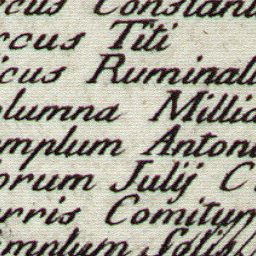 rcus Constanti
rcus Titi
icus Ruminali
olumna Millia
emplum Antoni
orum Julij C
rris Comitum
emplum